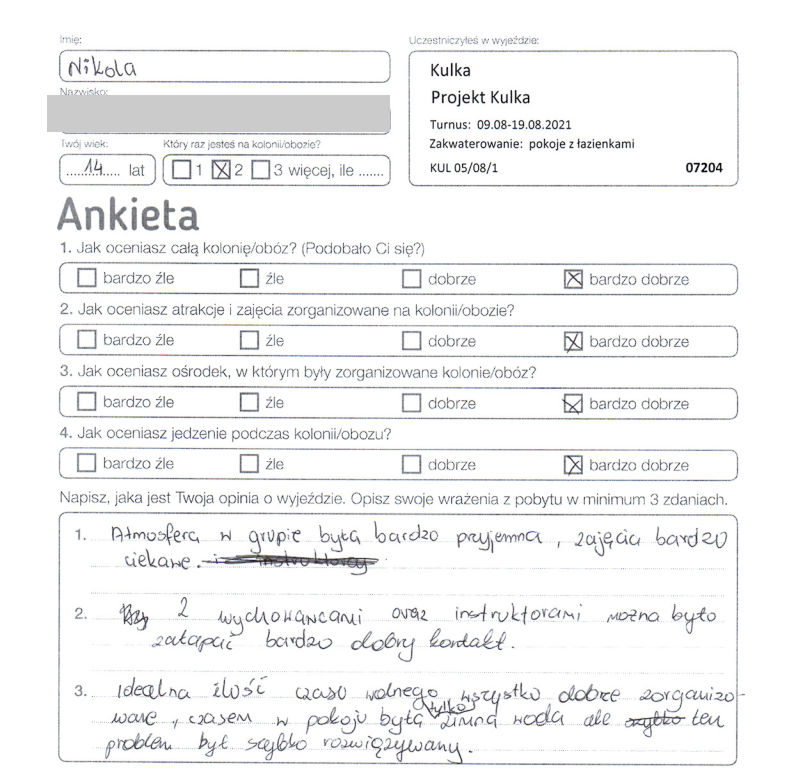 Imię:
Nikola
Nazwisko:
Twój wiek:
14 lat
Który raz jesteś na kolonii/obozie?
1 2 3 więcej, ile .......
Uczestniczyłeś w wyjeździe:
Kulka
Projekt Kulka
Turnus: 09.08-19.08.2021
Zakwaterowanie: pokoje z łazienkami
KUL 05/08/1 07204
Ankieta
1. Jak oceniasz całą kolonię/obóz? (Podobało Ci się?)
bardzo źle źle dobrze bardzo dobrze
2. Jak oceniasz atrakcje i zajęcia zorganizowane na kolonii/obozie?
bardzo źle źle dobrze bardzo dobrze
3. Jak oceniasz ośrodek, w którym były zorganizowane kolonie/obóz?
bardzo źle źle dobrze bardzo dobrze
4. Jak oceniasz jedzenie podczas kolonii/obozu?
bardzo źle źle dobrze bardzo dobrze
Napisz, jaka jest Twoja opinia o wyjeździe. Opisz swoje wrażenia z pobytu w minimum 3 zdaniach.
1. Atmosfera w grupie była bardzo przyjemna, zajęcia bardzo
ciekawe. i instruktorzy
2. Z wychowawcami oraz instruktorami można było
załapać bardzo dobry kontakt.
3. Idealna ilość czasu wolnego, wszystko dobrze zorganizo-
wane, czasem w pokoju była tylko zimna woda ale szybko ten
problem był szybko rozwiązywany.